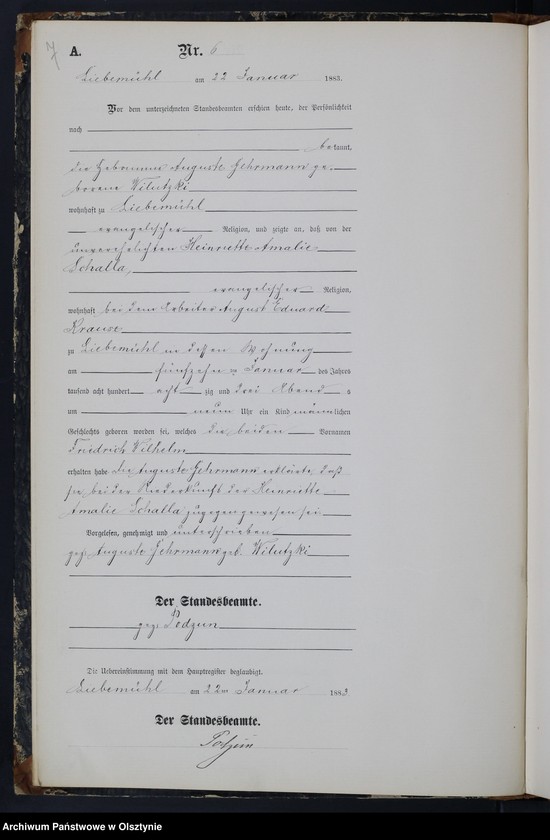 7
A. Nr. 6
Liebemühl am 22 Januar 1883.
Vor dem unterzeichneten Standesbeamten erschien heute, der Persönlichkeit
nach
bekannt,
die Hebamme Auguste Jehrmann ge-
borene Wilutzki
wohnhaft zu Liebemühl
evangelischer Religion, und zeigte an, daß von der
unverehelichten Heinriette Amalie
Schalla,
evangelischer Religion,
wohnhaft bei dem Arbeiter August Eduard
Krause
zu Liebemühl in dessen Wohnung
am fünfzehn ten Januar des Jahres
tausend acht hundert acht zig und drei Abend s
um neun Uhr ein Kind männlichen
Geschlechts geboren worden sei, welches die beiden Vornamen
Friedrich Wilhelm
erhalten habe. Die Auguste Jehrmann erklärte, daß
sie bei der Niederkunft der Heinriette
Amalie Schalla zugegen gewesen sei
Vorgelesen, genehmigt und unterschrieben
gez. Auguste Jehrmann geb. Wilutzki
Der Standesbeamte.
gez.
Die Uebereinstimmung mit dem Hauptregister beglaubigt.
Liebemühl am 22ten Januar 1883
Der Standesbeamte.
Archiwum Państwowe w Olsztynie